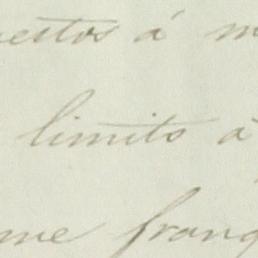 estos á m
limito á
me franq